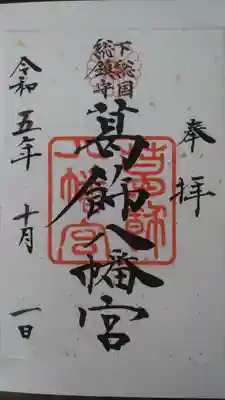 奉拝
下総国
総鎮守
葛飾八幡宮
葛飾
八幡宮
令和五年十月一日